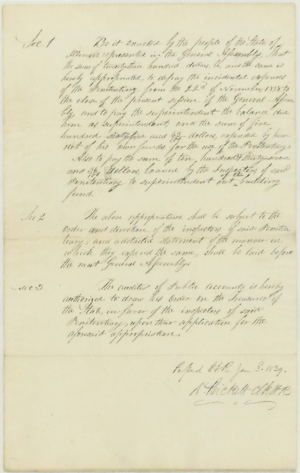 Sec. 1 Be it enacted by the people of the State of
Illinois represented in the General Assembly, That
the sum of twenty two hundred dollars be and the same is
hereby appropriated, to defray the incidental expenses
of the Penitentiary from the 22d of November 1838 to
the close of the present session of the General Assem-
bly, and to pay the superintendent the balance due
him as superintendent, and the sum of five
hundred and dollars, advanced by him
out of his own funds for the use of the Penitentiary.
Also to pay the sum of two hundred
and dollars loaned by the Inspectors of said
Penitentiary to superintendent out building
fund.
Sec 2 The above appropriation shall be subject to the
order and direction of the inspectors of said Peniten-
tiary, and a detailed statement of the manner in
which they expend the same, shall be laid before
the next General Assembly.
Sec 3 The auditor of Public accounts is hereby
authorized to draw his order on the Treasurer of
the State, in favor of the inspectors of said
Penitentiary, upon their application for the
aforesaid appropriation.
Passed H.R. Jan 3. 1839.